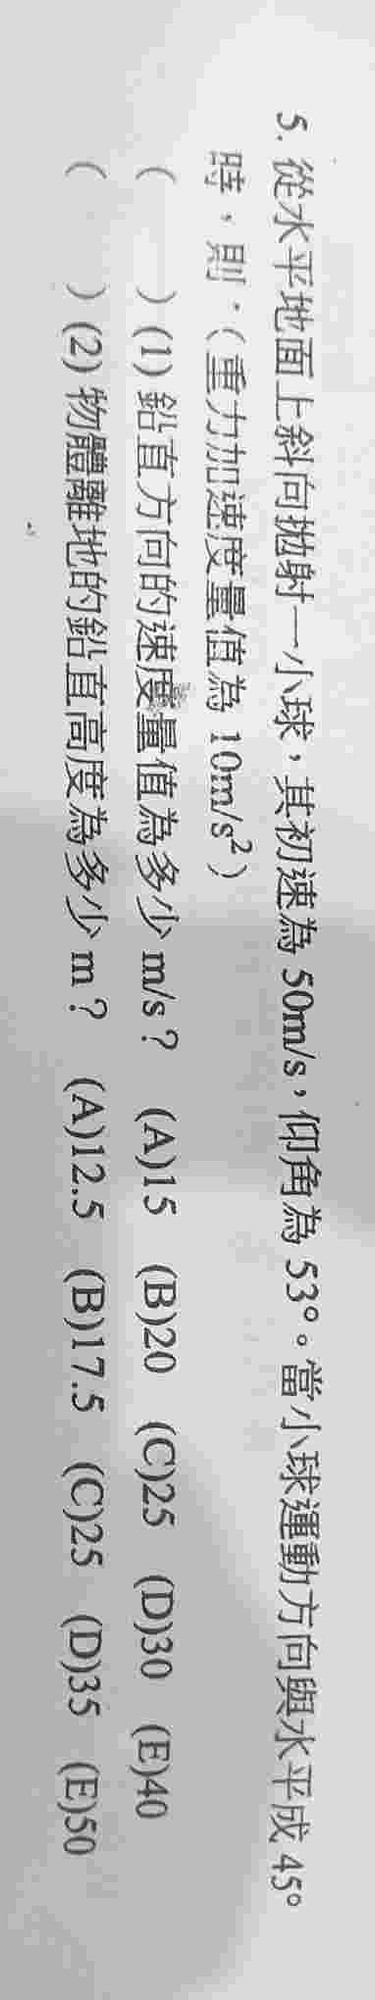 5. 從水平地面上斜向拋射一小球，其初速為 50m/s，仰角為 53°。當小球運動方向與水平成 45°
時，則：（重力加速度量值為 10m/s²）
(　) (1) 鉛直方向的速度量值為多少 m/s？ (A)15 (B)20 (C)25 (D)30 (E)40
(　) (2) 物體離地的鉛直高度為多少 m？ (A)12.5 (B)17.5 (C)25 (D)35 (E)50